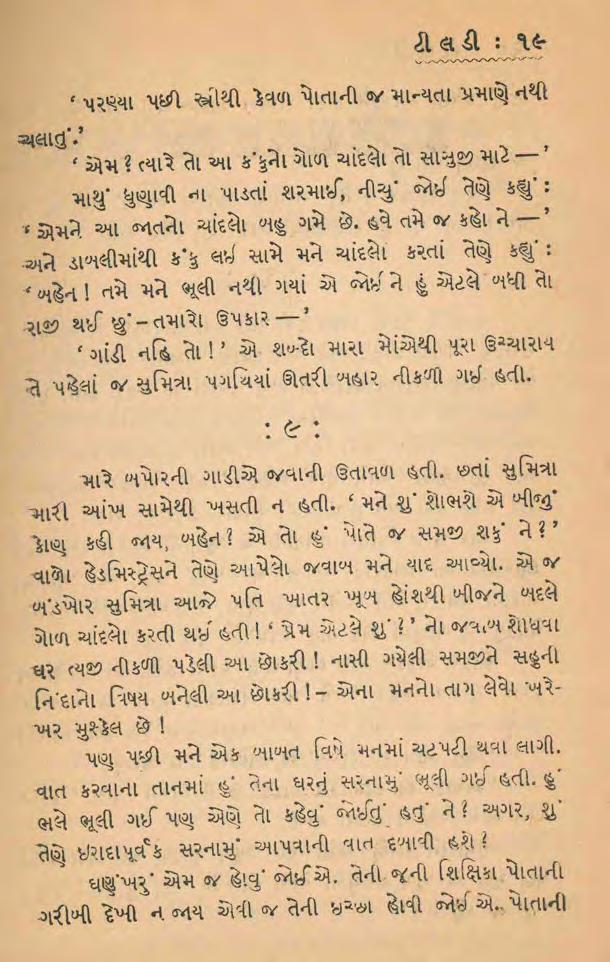 ટીલડી : ૧૯
‘ પરણ્યા પછી સ્ત્રીથી કેવળ પોતાની જ માન્યતા પ્રમાણે નથી
ચલાતું.’
‘ એમ ? ત્યારે તો આ કંકુનો ગોળ ચાંદલો તો સાસુજી માટે —’
માથું ધુણાવી ના પાડતાં શરમાઈ, નીચું જોઈ તેણે કહ્યું :
‘ એમને આ જાતનો ચાંદલો બહુ ગમે છે. હવે તમે જ કહો ને —’
અને ડાબલીમાંથી કંકુ લઇ સામે મને ચાંદલો કરતાં તેણે કહ્યું :
‘ બહેન ! તમે મને ભૂલી નથી ગયાં એ જોઈ ને હું એટલે બધી તો
રાજી થઈ છું – તમારો ઉપકાર —’
‘ ગાંડી નહિ તો ! ’ એ શબ્દો મારા મોંએથી પૂરા ઉચ્ચારાય
તે પહેલાં જ સુમિત્રા પગથિયાં ઊતરી બહાર નીકળી ગઇ હતી.
: ૯ :
મારે બપોરની ગાડીએ જવાની ઉતાવળ હતી. છતાં સુમિત્રા
મારી આંખ સામેથી ખસતી ન હતી. ‘ મને શું શોભશે એ બીજું
કોણ કહી જાય, બહેન ? એ તો હું પોતે જ સમજી શકું ને ? ’
વાળો હેડમિસ્ટ્રેસને તેણે આપેલો જવાબ મને યાદ આવ્યો. એ જ
બંડખોર સુમિત્રા આજે પતિ ખાતર ખૂબ હોંશથી બીજને બદલે
ગોળ ચાંદલો કરતી થઇ હતી ! ‘ પ્રેમ એટલે શું ? ’ નો જવાબ શોધવા
ઘર ત્યજી નીકળી પડેલી આ છોકરી ! નાસી ગયેલી સમજીને સહુની
નિંદાનો વિષય બનેલી આ છોકરી ! – એના મનનો તાગ લેવો ખરે-
ખર મુશ્કેલ છે !
પણ પછી મને એક બાબત વિષે મનમાં ચટપટી થવા લાગી.
વાત કરવાના તાનમાં હું તેના ઘરનું સરનામું ભૂલી ગઈ હતી. હું
ભલે ભૂલી ગઈ પણ એણે તો કહેવું જોઈતું હતું ને ? અગર, શું
તેણે ઇરાદાપૂર્વક સરનામું આપવાની વાત દબાવી હશે ?
ઘણુંખરું એમ જ હોવું જોઈએ. તેની જૂની શિક્ષિકા પોતાની
ગરીબી દેખી ન જાય એવી જ તેની ઇચ્છા હોવી જોઈએ. પોતાની